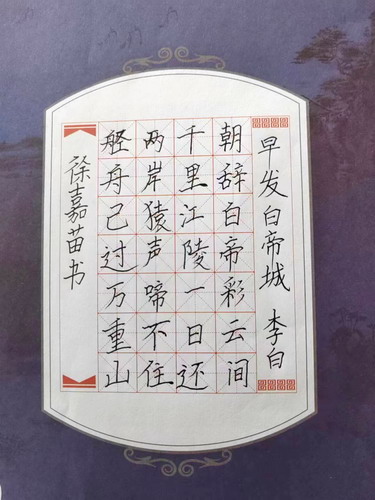 早发白帝城 李白
朝辞白帝彩云间
千里江陵一日还
两岸猿声啼不住
轻舟已过万重山
徐嘉苗书